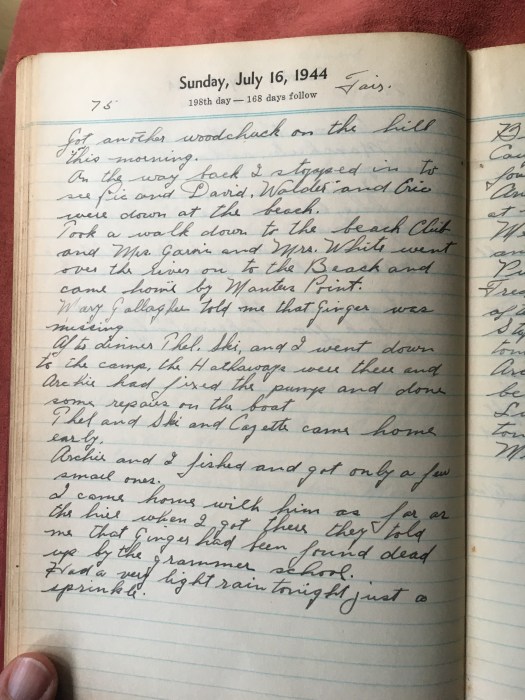 Sunday, July 16, 1944 Fair.
75 198th day — 168 days follow
Got another woodchuck on the hill
this morning.
On the way back I stopped in to
see Vic and David, Walder and Eric
were down at the beach.
Took a walk down to the beach Club
and Mrs. Garvin and Mrs. White went
over the river on to the Beach and
came home by Manters Point.
Mary Gallagher told me that Ginger was
missing
After dinner Phel, Ski, and I went down
to the camp, the Hathaways were there and
Archie had fixed the pump and done
some repairs on the boat
Phel and Ski and Cozette came home
early.
Archie and I fished and got only a few
small ones.
I came home with him as far as
the hill when I got there they told
me that Ginger had been found dead
up by the grammer school.
Had a very light rain tonight just a
sprinkle.